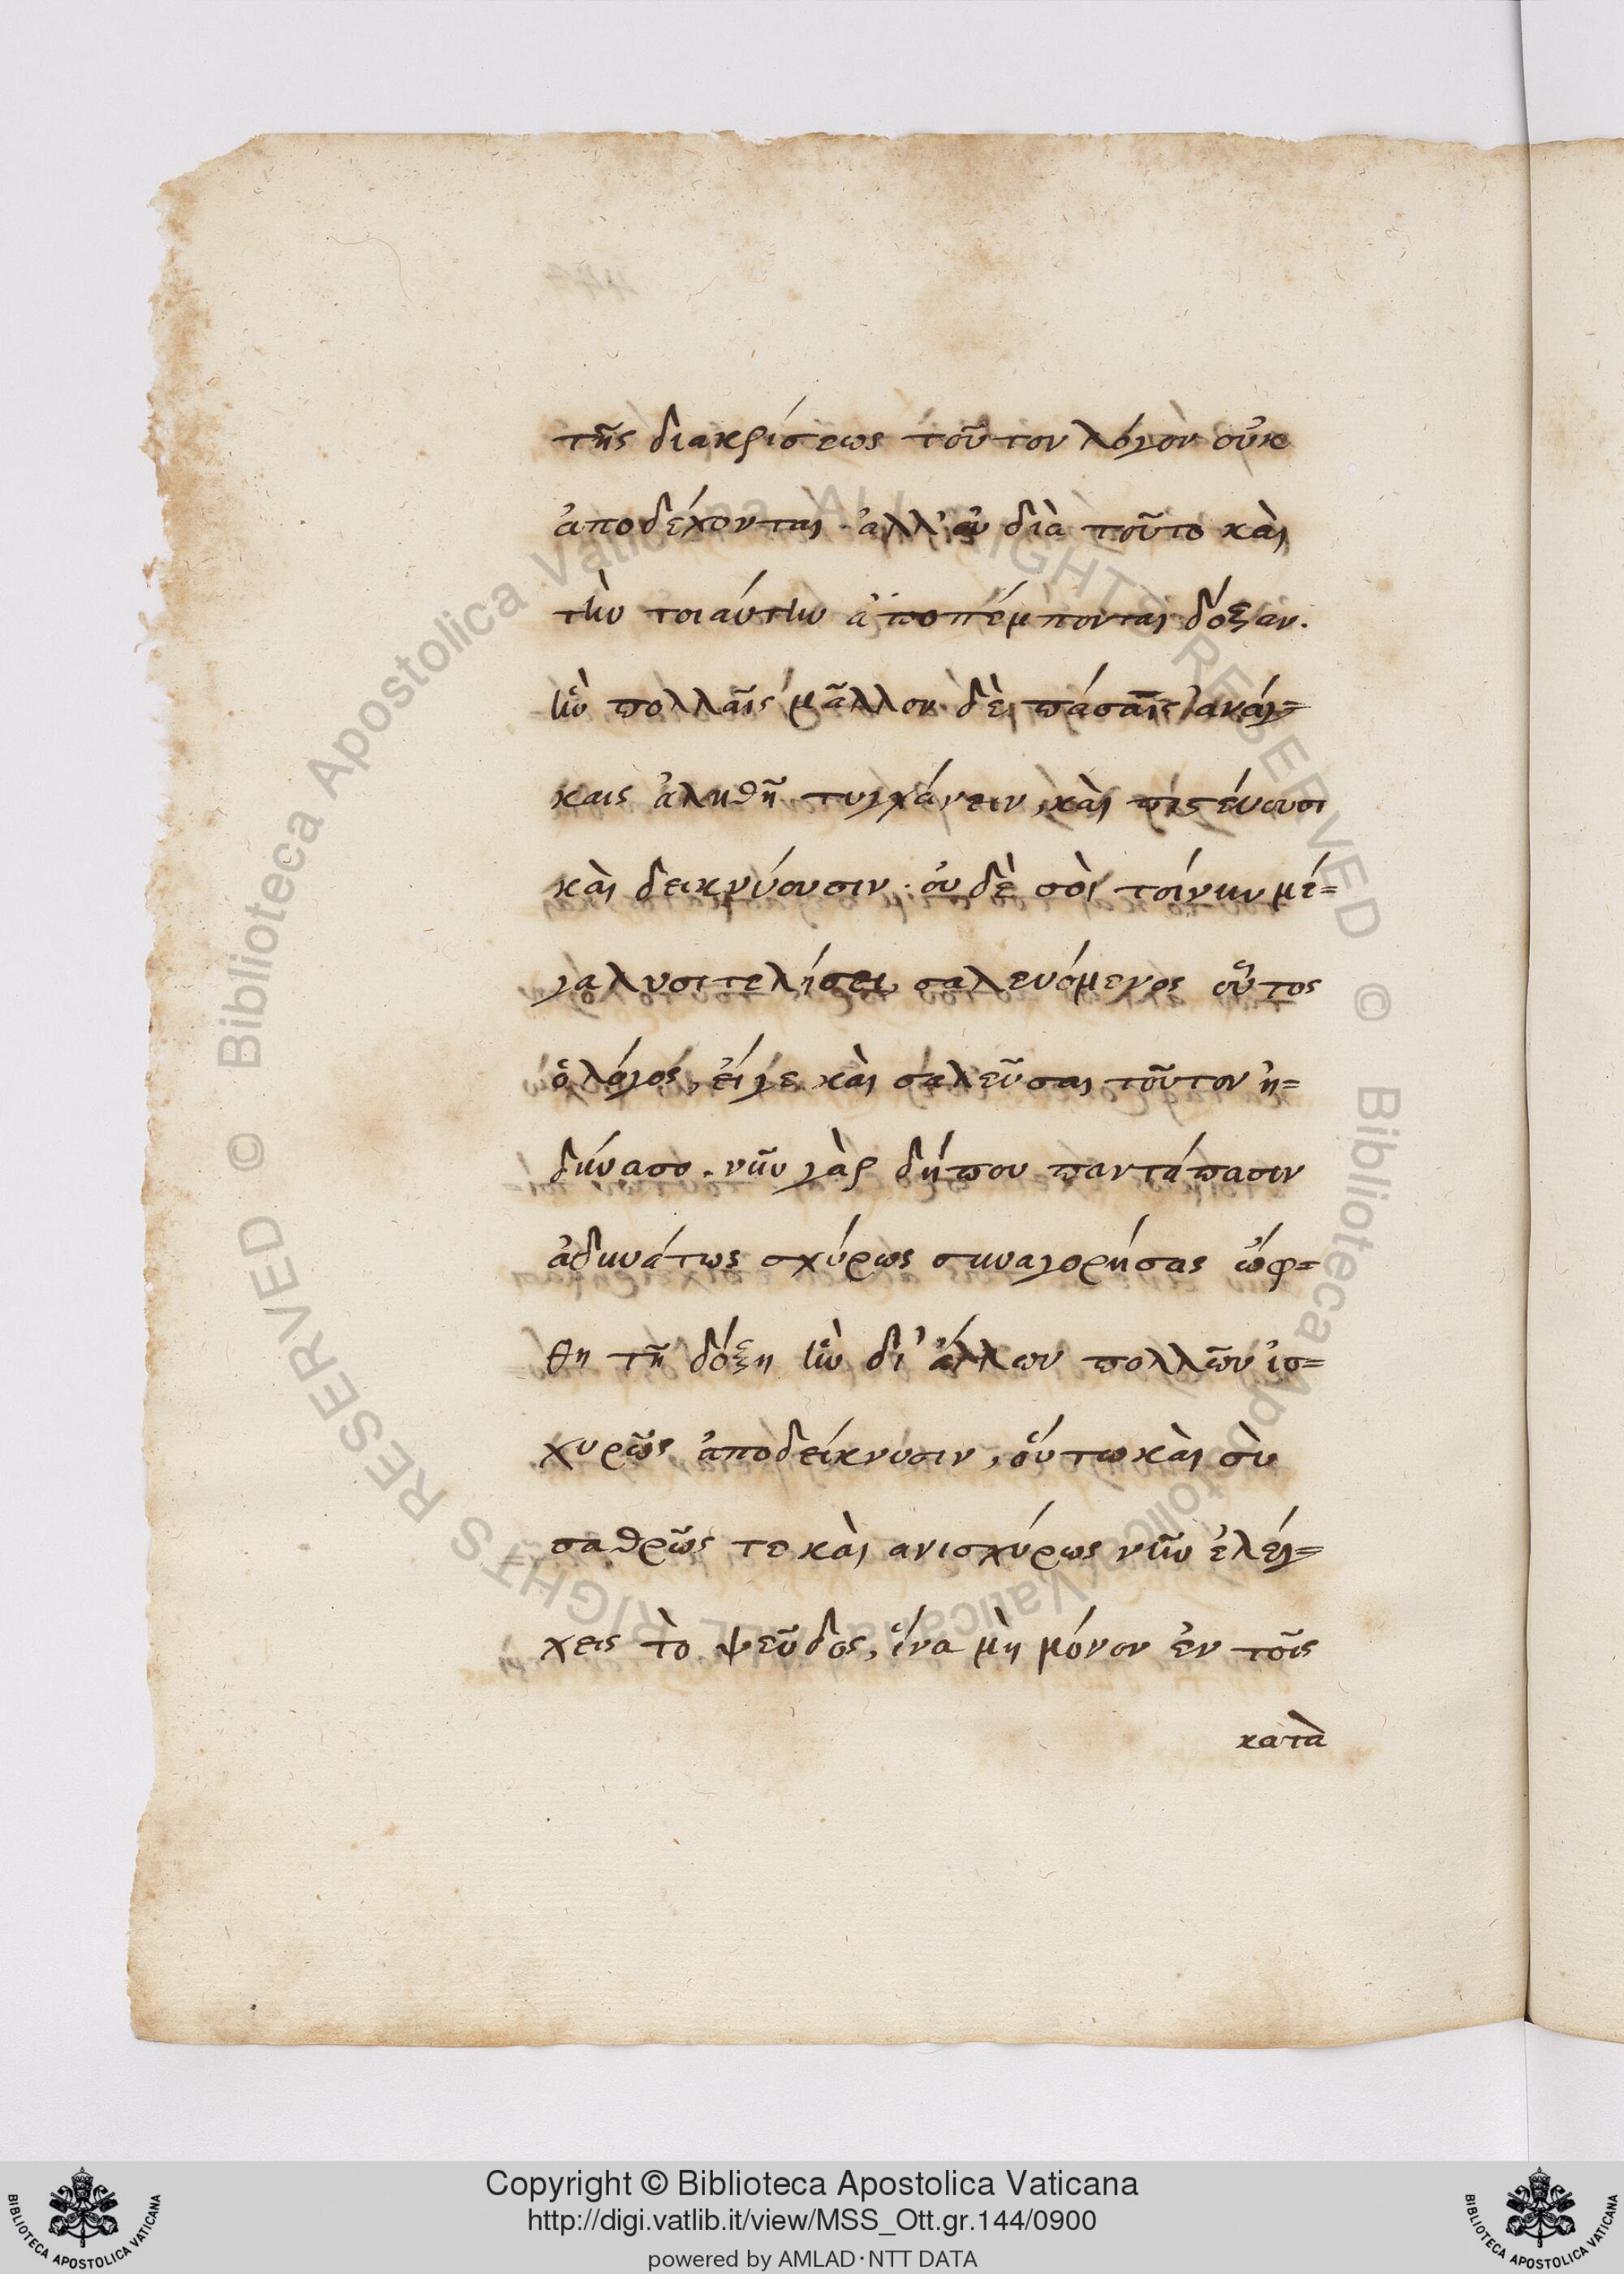 τῆς διακρίσεως τοῦτον λόγον οὐκ
ἀποδέχονται. ἀλλ' οὐ διὰ τοῦτο καὶ
τὴν τοιαύτην ἀποπέμπονται δόξαν.
ἣν πολλαῖς μᾶλλον δὲ πάσαις ἀνάγ=
καις ἀληθῆ τυγχάνειν, καὶ πιστεύουσι
καὶ δεικνύουσιν. οὐδὲ σοὶ τοίνυν με=
γαλυσιτελήσει σαλευόμενος οὗτος
ὁ λόγος, εἴγε καὶ σαλεῦσαι τοῦτον ἠ=
δύνασο. νῦν γὰρ δήπου παντάπασιν
ἀδυνάτως σχύρως συναγορήσας ὤφ=
θη τῆ δόξη ἣν δι' ἄλλων πολλῶν ἰσ=
χυρῶς ἀποδείκνυσιν, οὕτω καὶ σὺ
σαθρῶς τε καὶ ανισχύρως νῦν ἐλέγ=
χεις τὸ ψεῦδος, ἵνα μὴ μόνον ἐν τοῖς
κατὰ
Copyright © Biblioteca Apostolica Vaticana
http://digi.vatlib.it/view/MSS_Ott.gr.144/0900
powered by AMLAD·NTT DATA
BIBLIOTECA APOSTOLICA VATICANA
BIBLIOTECA APOSTOLICA VATICANA
© Biblioteca Apostolica Vaticana ALL RIGHTS RESERVED © Biblioteca Apostolica Vaticana ALL RIGHTS RESERVED